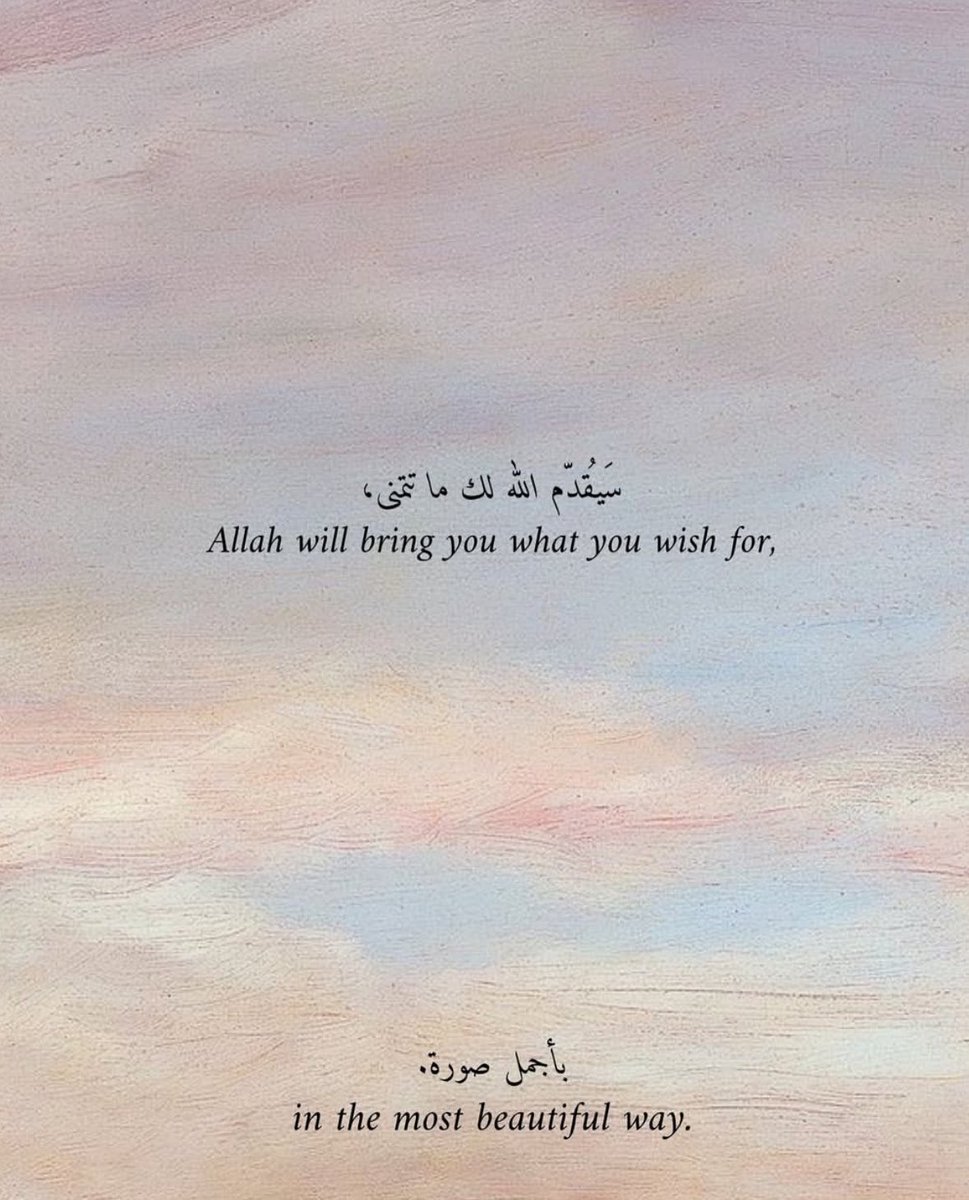 سَيُقدّم الله لك ما تتمنى،
Allah will bring you what you wish for,
بأجمل صورة.
in the most beautiful way.